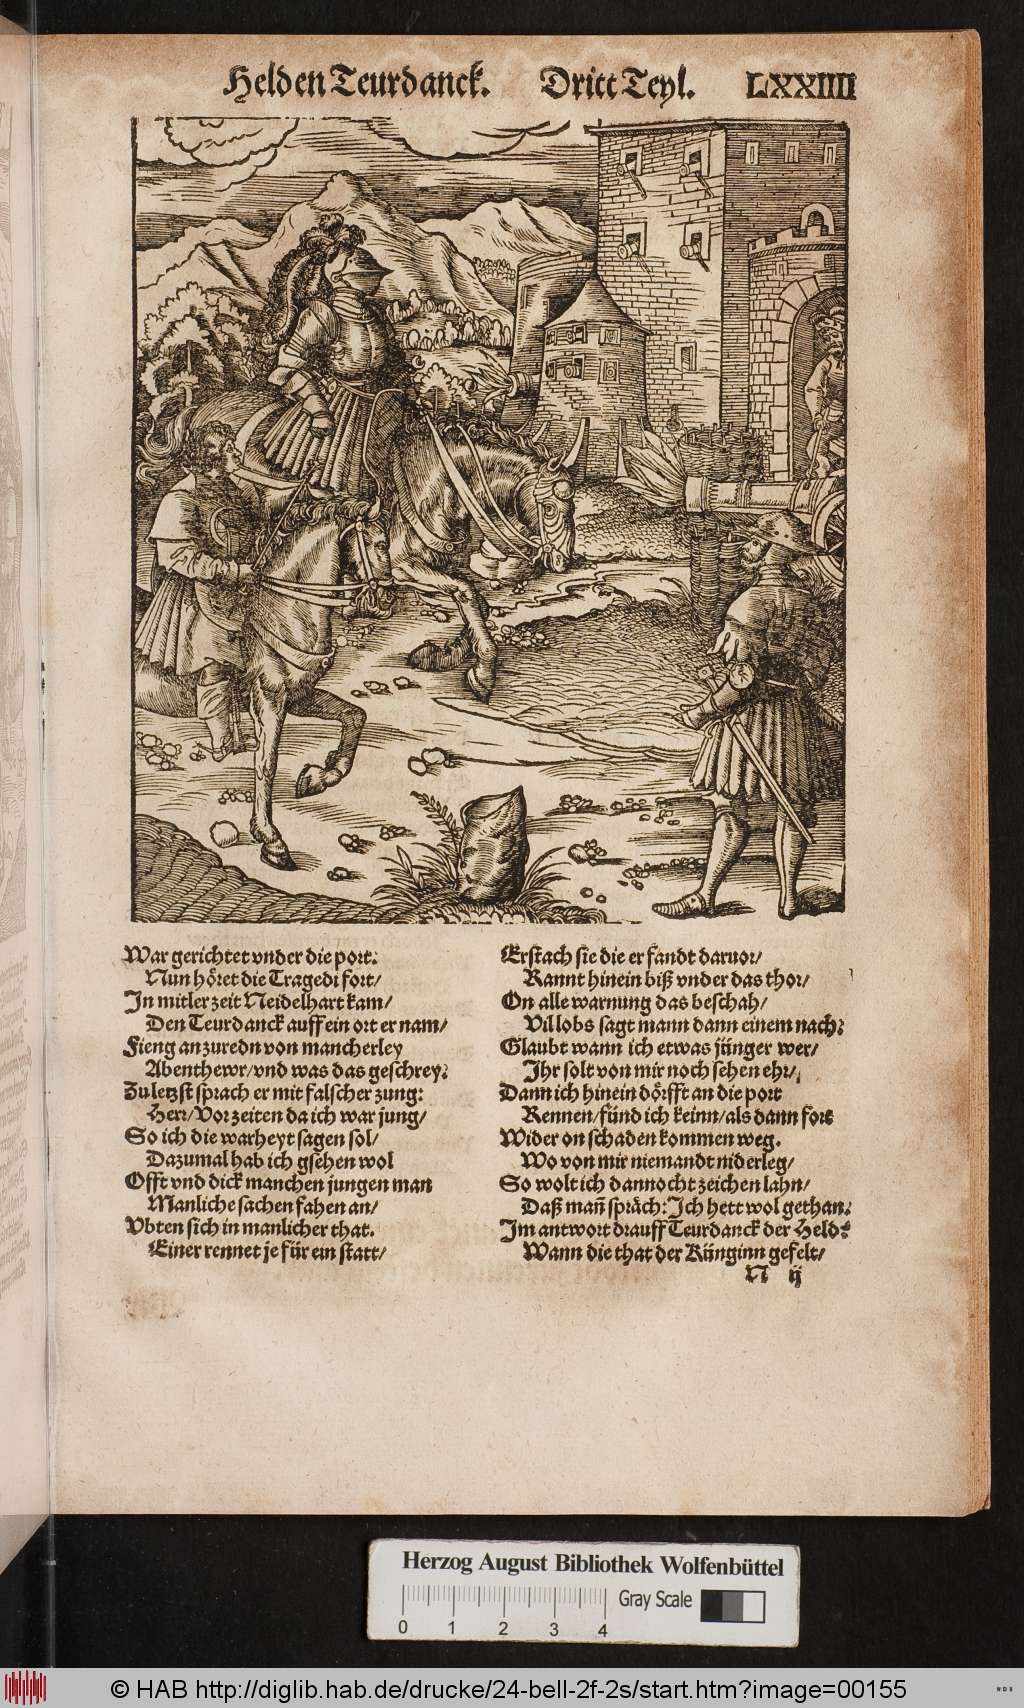 Helden Teurdanck. Dritt Teyl. LXXIIII
War gerichtet vnder die port:
Nun höret die Tragedi fort/
In mitler zeit Neidelhart kam/
Den Teurdanck auff ein ort er nam/
Fieng an zuredn von mancherley
Abenthewr/vnd was das geschrey:
Zu letzst sprach er mit falscher zung:
Herr/Vor zeiten da ich war jung/
So ich die warheyt sagen sol/
Dazumal hab ich gsehen wol
Offt vnd dick manchen jungen man
Manliche sachen fahen an/
Vbten sich in manlicher that.
Einer rennet je für ein statt/
Erstach sie die er fandt daruor/
Rannt hinein biß vnder das thor/
On alle warnung das beschah/
Vil lobs sagt mann dann einem nach:
Glaubt wann ich etwas jünger wer/
Ihr solt von mir noch sehen ehr/
Dann ich hinein dörfft an die port
Rennen/fünd ich keinn/als dann fort
Wider on schaden kommen weg.
Wo von mir niemandt niderleg/
So wolt ich dannocht zeichen lahn/
Daß man̄ spräch: Ich hett wol gethan.
Im antwort drauff Teurdanck der Held:
Wann die that der Künginn gefelt/
N ij
Herzog August Bibliothek Wolfenbüttel
Gray Scale
0 1 2 3 4
© HAB http://diglib.hab.de/drucke/24-bell-2f-2s/start.htm?image=00155